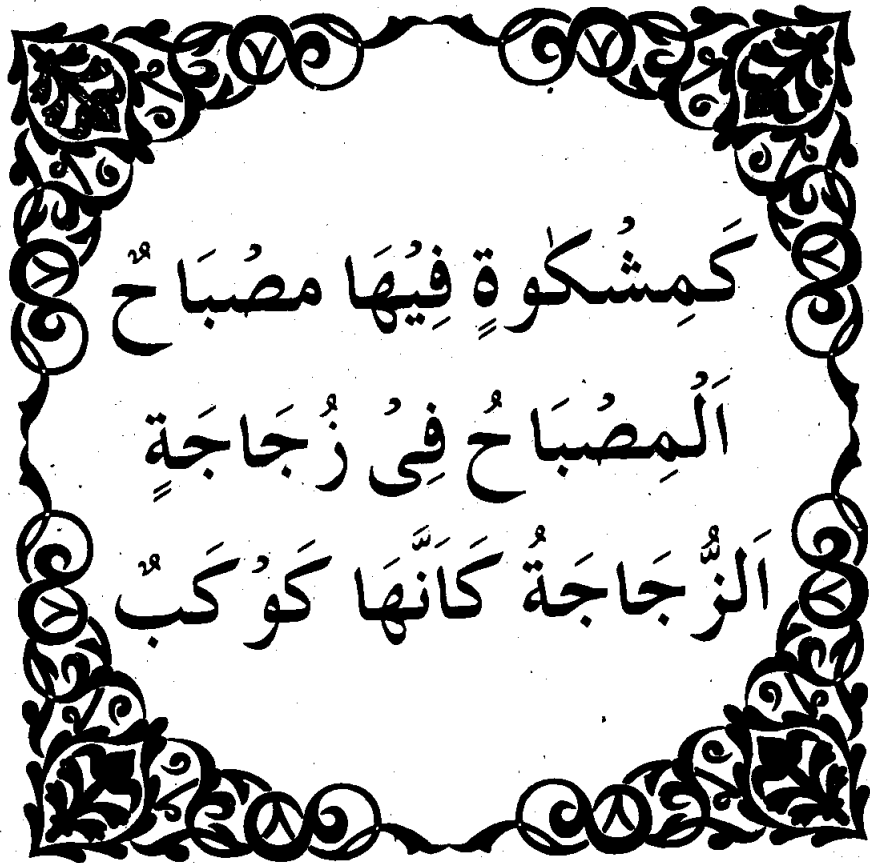 كَمِشْكٰوةٍ فِيْهَا مِصْبَاحٌ
اَلْمِصْبَاحُ فِىْ زُجَاجَةٍ
اَلزُّجَاجَةُ كَاَنَّهَا كَوْكَبٌ